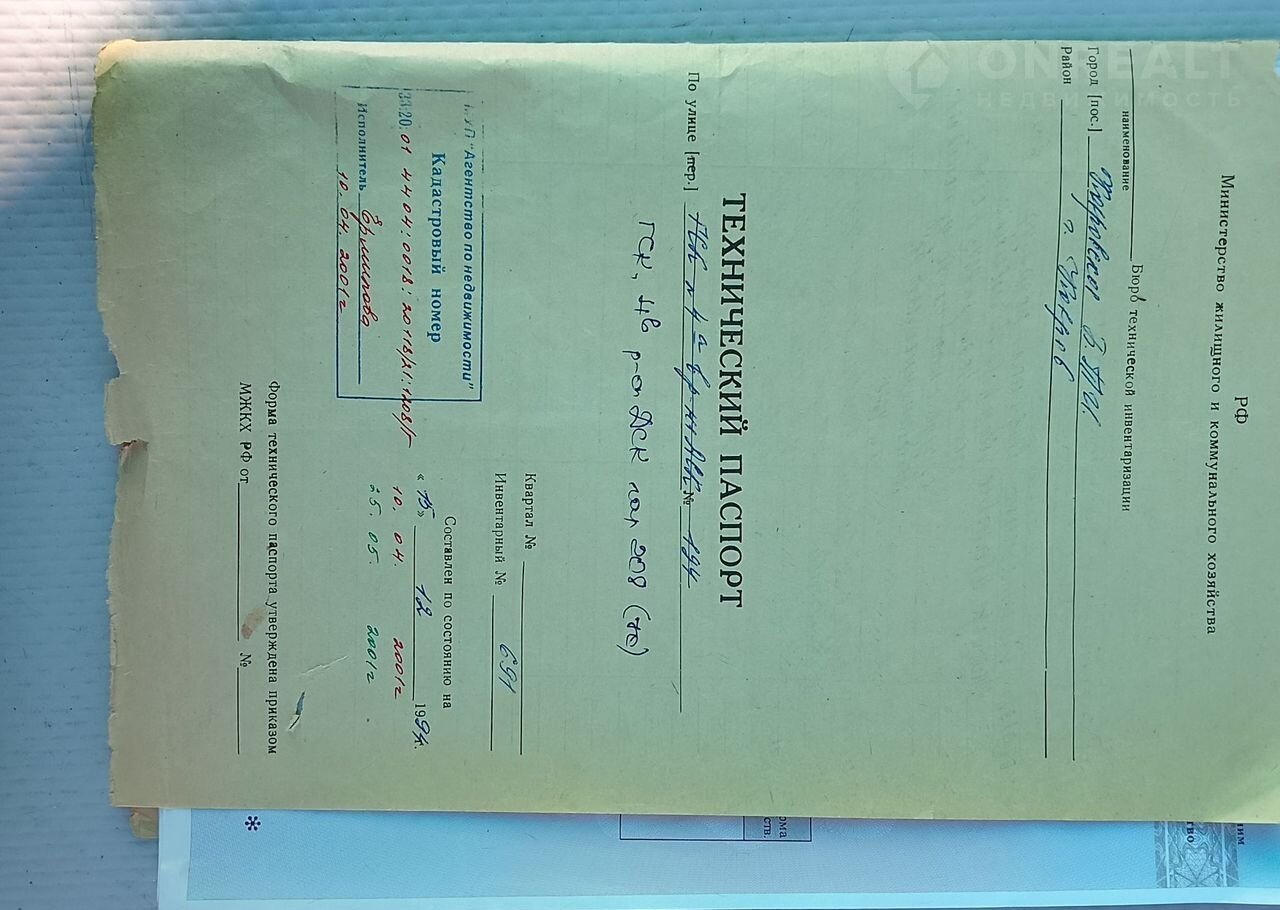 РФ
Министерство жилищного и коммунального хозяйства
Бюро технической инвентаризации
наименование
Город [пос.] Ковровское БТИ
Район г. Ковров
ТЕХНИЧЕСКИЙ ПАСПОРТ
По улице [пер.] № 194
ГСК, 4в р-он ДСК гар 208 (
Квартал №
Инвентарный № 691
Составлен по состоянию на
«15» 12 1994г.
10. 04. 2001г
25. 05. 2001г.
"Агентство по недвижимости"
Кадастровый номер
33:20:01 44 04:0018:20118/21:1208/Г
Исполнитель Ермилова
10. 04. 2001г
Форма технического паспорта утверждена приказом
МЖКХ РФ от № 
ONREALT
НЕДВИЖИМОСТЬ
*